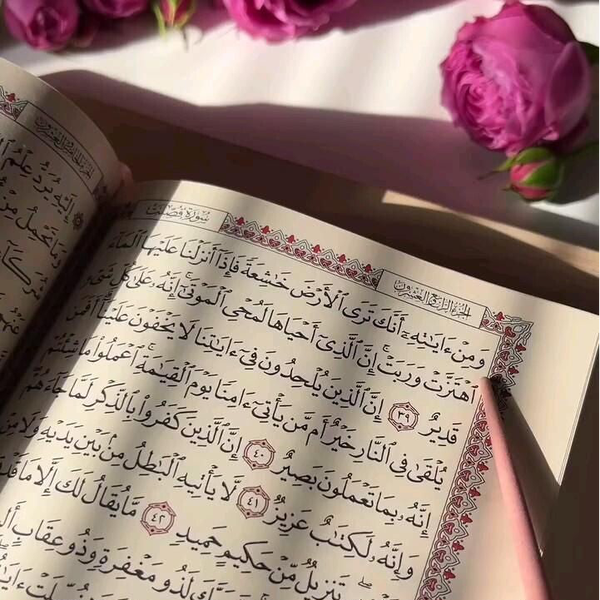 سُورَةُ فُصِّلَتْ
الجزء الرابع والعشرون
وَمِنْ ءَايَٰتِهِۦٓ أَنَّكَ تَرَى ٱلْأَرْضَ خَٰشِعَةً فَإِذَآ أَنزَلْنَا عَلَيْهَا ٱلْمَآءَ
ٱهْتَزَّتْ وَرَبَتْ ۚ إِنَّ ٱلَّذِىٓ أَحْيَاهَا لَمُحْىِ ٱلْمَوْتَىٰٓ ۚ إِنَّهُۥ عَلَىٰ كُلِّ شَىْءٍ
قَدِيرٌ ٣٩ إِنَّ ٱلَّذِينَ يُلْحِدُونَ فِىٓ ءَايَٰتِنَا لَا يَخْفَوْنَ عَلَيْنَآ ۗ أَفَمَن
يُلْقَىٰ فِى ٱلنَّارِ خَيْرٌ أَم مَّن يَأْتِىٓ ءَامِنًا يَوْمَ ٱلْقِيَٰمَةِ ۚ ٱعْمَلُوا۟ مَا شِئْتُمْ
إِنَّهُۥ بِمَا تَعْمَلُونَ بَصِيرٌ ٤٠ إِنَّ ٱلَّذِينَ كَفَرُوا۟ بِٱلذِّكْرِ لَمَّا جَآءَهُمْ
وَإِنَّهُۥ لَكِتَٰبٌ عَزِيزٌ ٤١ لَّا يَأْتِيهِ ٱلْبَٰطِلُ مِنۢ بَيْنِ يَدَيْهِ وَلَا مِنْ
تَنزِيلٌ مِّنْ حَكِيمٍ حَمِيدٍ ٤٢ مَّا يُقَالُ لَكَ إِلَّا مَا قَدْ
لَذُو مَغْفِرَةٍ وَذُو عِقَابٍ
إِلَيْهِ يُرَدُّ عِلْمُ